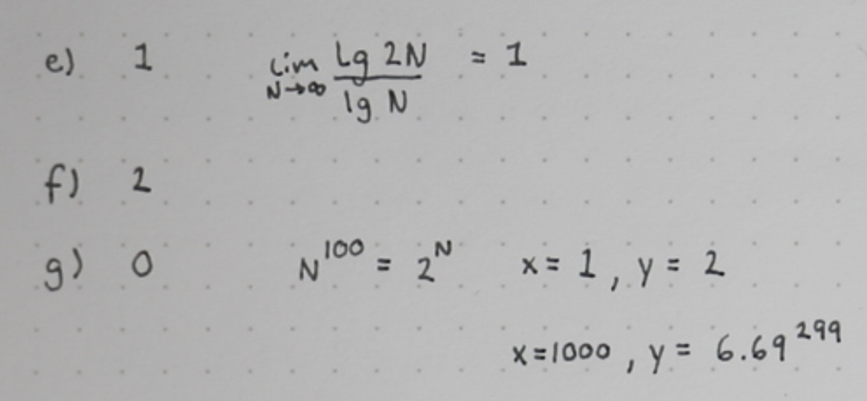 e) 1 lim N→∞ Lg 2N / lg N = 1
f) 2
g) 0 N^100 = 2^N x = 1, y = 2
x = 1000, y = 6.69^299